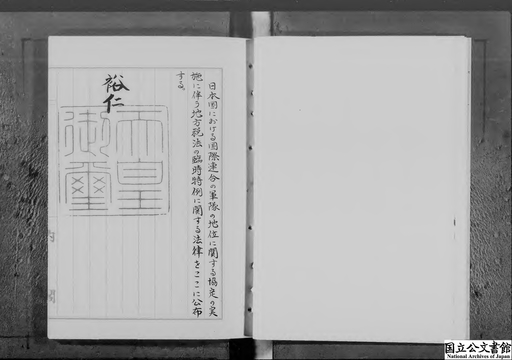 日本国における国際連合の軍隊の地位に関する協定の実
施に伴う地方税法の臨時特例に関する法律をここに公布
する。
裕仁
天皇
御璽
国立公文書館
National Archives of Japan